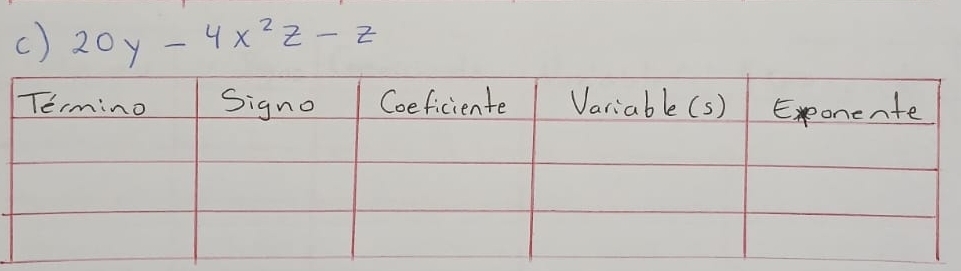 c) 20y - 4x²z - z
Término Signo Coeficiente Variable(s) Exponente